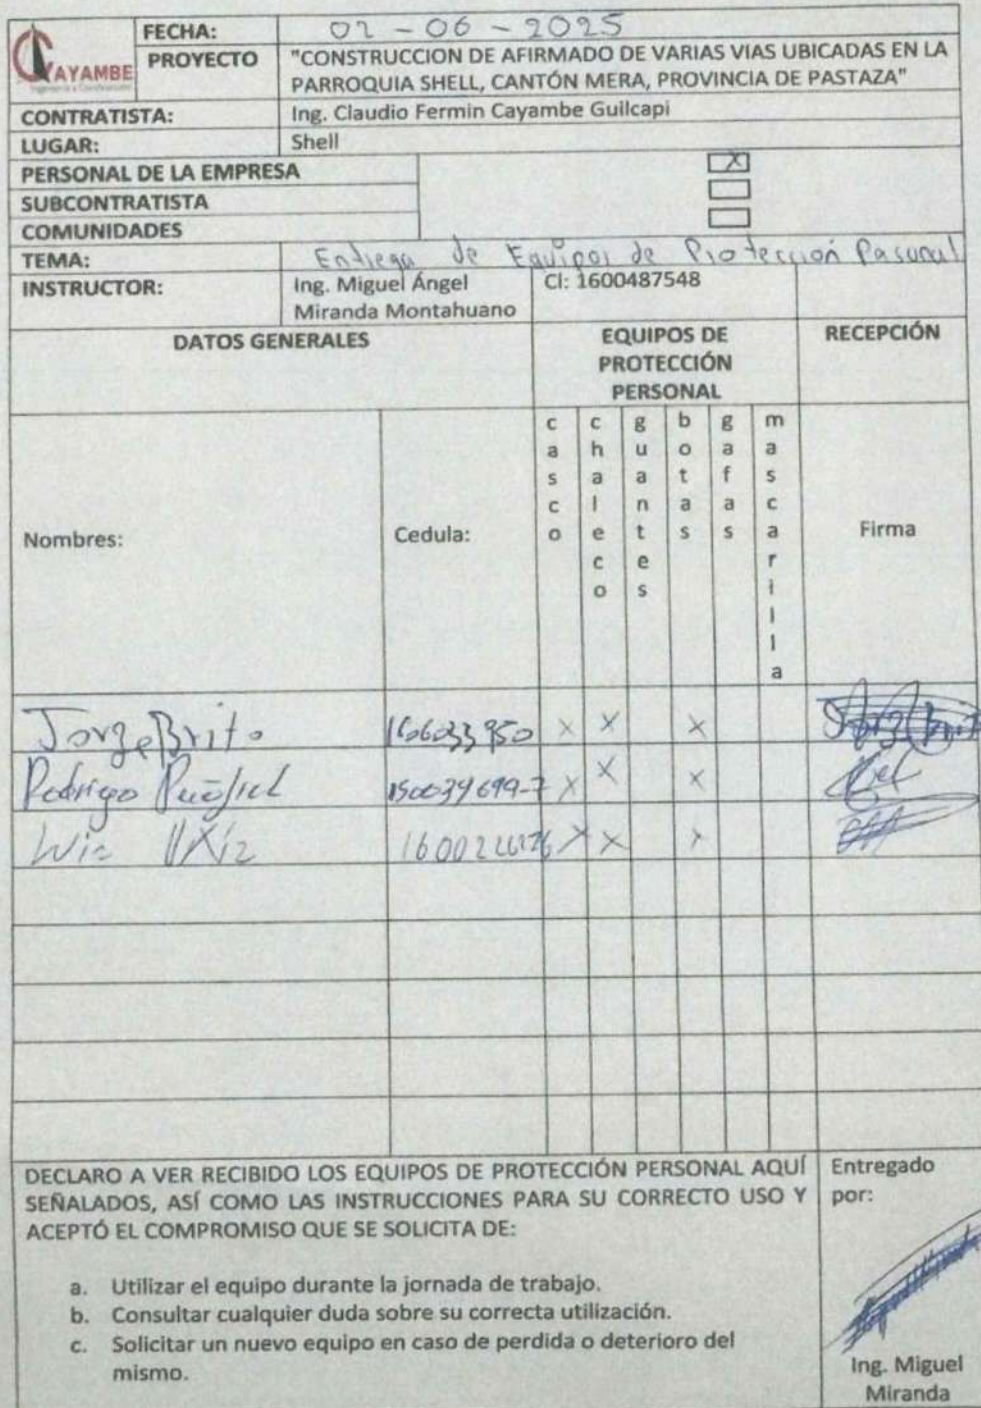 CAYAMBE
FECHA: 02 - 06 - 2025
PROYECTO "CONSTRUCCION DE AFIRMADO DE VARIAS VIAS UBICADAS EN LA
PARROQUIA SHELL, CANTÓN MERA, PROVINCIA DE PASTAZA"
CONTRATISTA: Ing. Claudio Fermin Cayambe Guilcapi
LUGAR: Shell
PERSONAL DE LA EMPRESA X
SUBCONTRATISTA
COMUNIDADES
TEMA: Entrega de Equipos de Protección Pasonal
INSTRUCTOR: Ing. Miguel Ángel
Miranda Montahuano
CI: 1600487548
DATOS GENERALES
EQUIPOS DE
PROTECCIÓN
PERSONAL
RECEPCIÓN
Nombres:
Cedula:
casco
chaleco
guantes
botas
gafas
mascarilla
Firma
Jorge Brito X X X
Rodrigo 150039699-7 X X X
X X X
DECLARO A VER RECIBIDO LOS EQUIPOS DE PROTECCIÓN PERSONAL AQUÍ
SEÑALADOS, ASÍ COMO LAS INSTRUCCIONES PARA SU CORRECTO USO Y
ACEPTÓ EL COMPROMISO QUE SE SOLICITA DE:
a. Utilizar el equipo durante la jornada de trabajo.
b. Consultar cualquier duda sobre su correcta utilización.
c. Solicitar un nuevo equipo en caso de perdida o deterioro del
mismo.
Entregado
por:
Ing. Miguel
Miranda